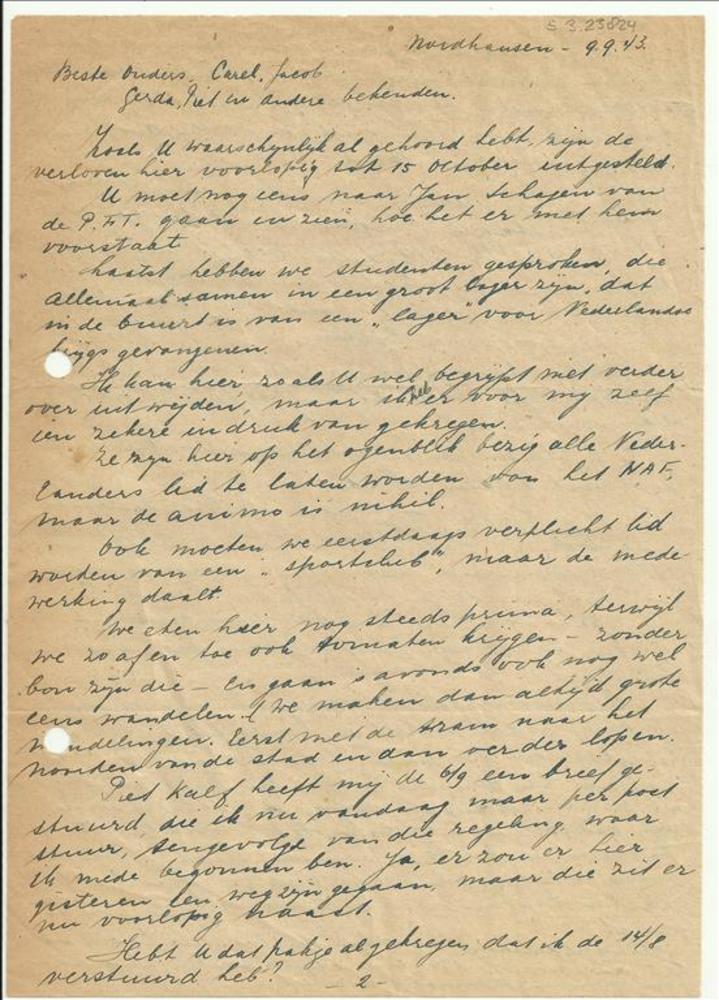 S 3.23824
Nordhausen - 9.9.'43.
Beste Ouders, Carel, Jacob
Gerda, Piet en andere bekenden.
Zoals U waarschynlyk al gehoord hebt, zyn de
verloven hier voorlopig tot 15 October uitgesteld.
U moet nog eens naar Jan Schagen van
de P.T.T. gaan en zien, hoe het er met hem
voorstaat
Laatst hebben we studenten gesproken, die
allemaal samen in een groot lager zyn, dat
in de buurt is van een "lager" voor Nederlandse
krygsgevangenen.
Ik kan hier zoals U wel begrypt niet verder
over uitwyden, maar ik heb er voor my zelf
een zekere indruk van gekregen.
Ze zyn hier op het ogenblik bezig alle Neder-
landers lid te laten worden van het NAF,
maar de animo is nihil.
Ook moeten we eerstdaags verplicht lid
worden van een "sportclub", maar de mede
werking daalt.
We eten hier nog steeds prima, terwyl
we zo af en toe ook tomaten krygen - zonder
bon zyn die - En gaan 's avonds ook nog wel
eens wandelen. We maken dan altyd grote
wandelingen. Eerst met de tram naar het
noorden van de stad en dan verder lopen.
Piet Kalf heeft my de 6/9 een brief ge-
stuurd, die ik nu vandaag maar per post
stuur, tengevolge van die regeling, waar
ik mede begonnen ben. Ja, er zou er hier
gisteren een weg zyn gegaan, maar die zit er
nu voorlopig naast.
Hebt U dat pakje al gekregen dat ik de 14/8
verstuurd heb?
- 2 -